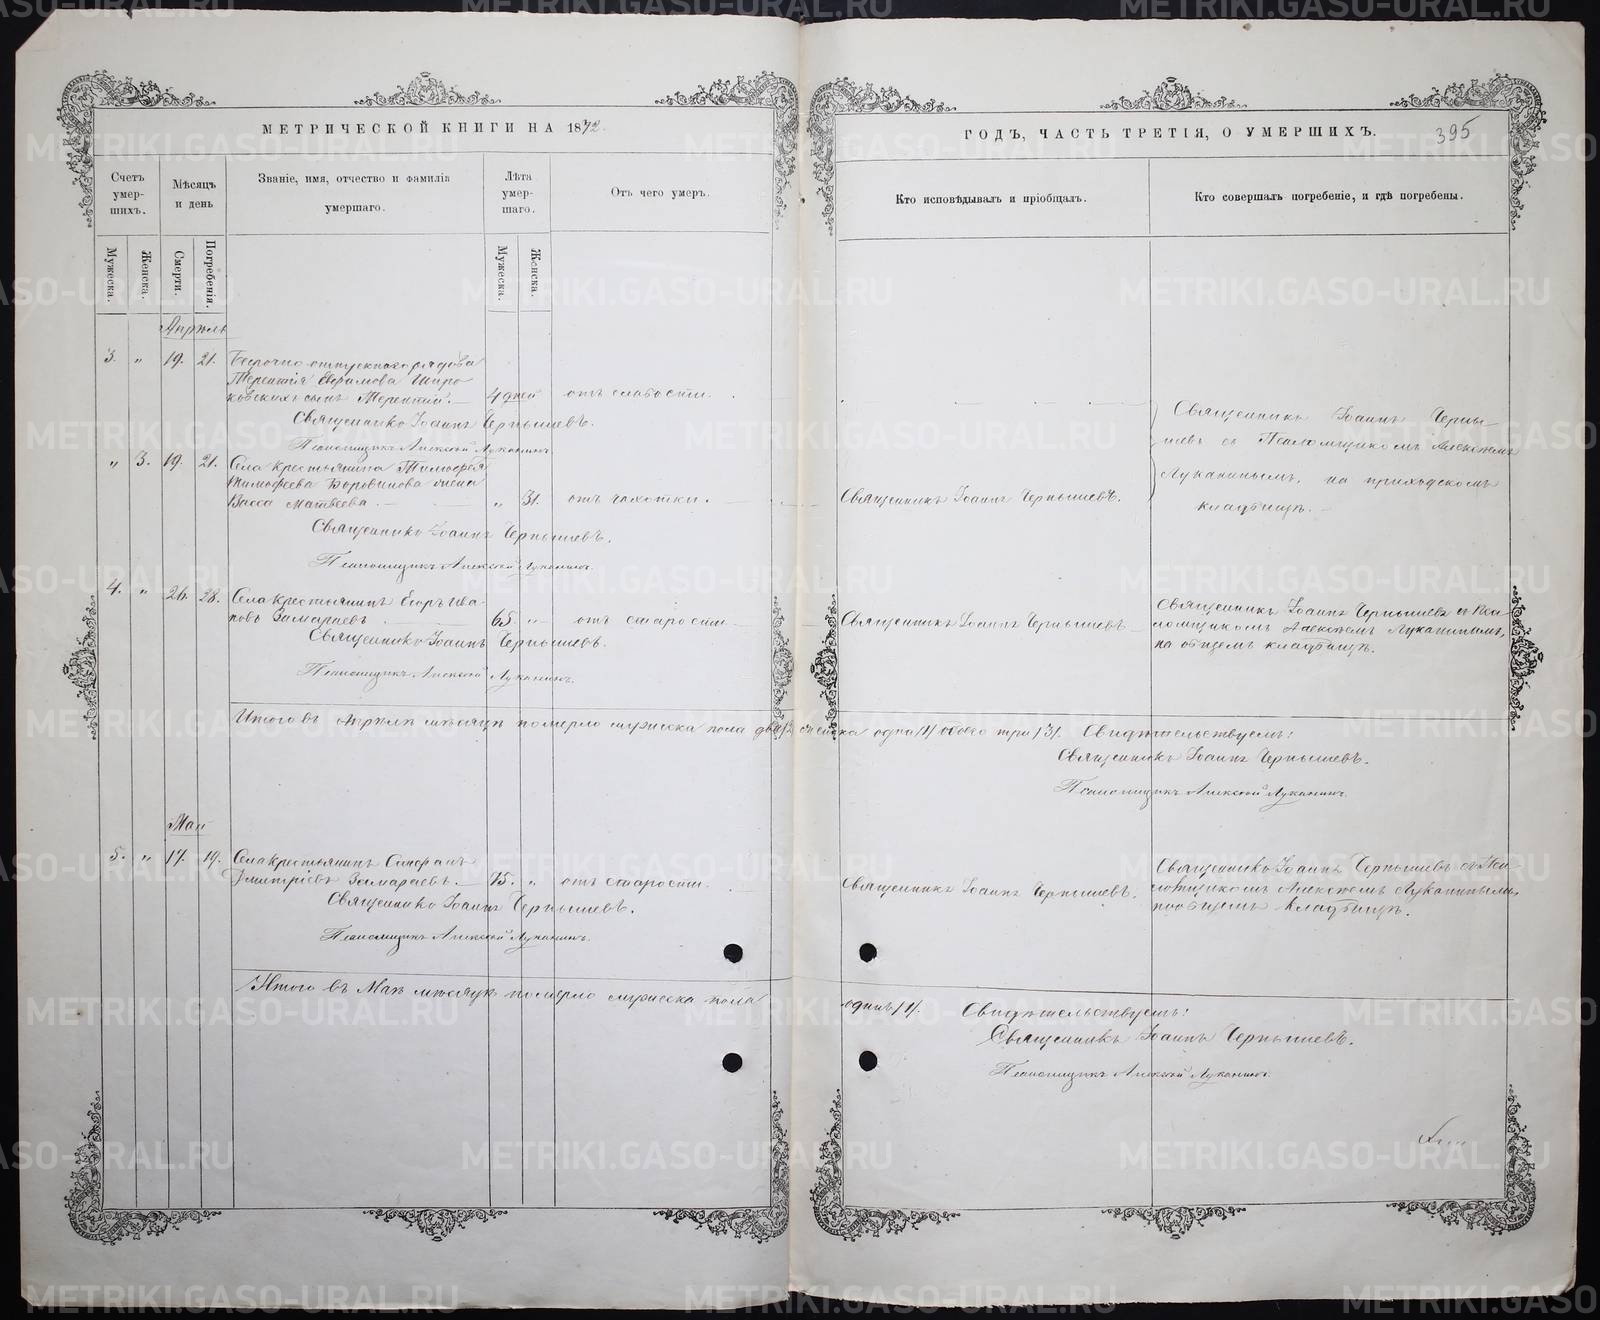 МЕТРИЧЕСКОЙ КНИГИ НА 1872.
ГОДЪ, ЧАСТЬ ТРЕТІЯ, О УМЕРШИХЪ.
395
Счетъ умер-шихъ.
Мѣсяцъ и день
Званіе, имя, отчество и фамилія умершаго.
Лѣта умер-шаго.
Отъ чего умеръ.
Кто исповѣдывалъ и пріобщалъ.
Кто совершалъ погребеніе, и гдѣ погребены.
Мужеска.
Женска.
Смерти.
Погребенія.
Мужеска.
Женска.
Апрѣль
3. " 19. 21. Безсрочно-отпускного рядова
Терентія Ефрамова Широ-
ковскихъ сынъ Терентій. 4 дней отъ слабости.
Священникъ Іоаннъ Чернышевъ.
Псаломщикъ Алексѣй Луканинъ.
Священникъ Іоаннъ Черны-
шевъ съ Псаломщикомъ Алексѣемъ
Луканинымъ, на приходскомъ
кладбищѣ.
" 3. 19. 21. Села крестьянина Тимофея
Тимофеева Боровикова жена
Васса Матвѣева. " 31. отъ чахотки. Священникъ Іоаннъ Чернышевъ.
Священникъ Іоаннъ Чернышевъ.
Псаломщикъ Алексѣй Луканинъ.
4. " 26. 28. Села крестьянинъ Егоръ Ива-
новъ Замараевъ 65 " отъ старости Священникъ Іоаннъ Чернышевъ
Священникъ Іоаннъ Чернышевъ съ Пса-
ломщикомъ Алексѣемъ Луканинымъ,
на общемъ кладбищѣ.
Священникъ Іоаннъ Чернышевъ.
Псаломщикъ Алексѣй Луканинъ.
Итого въ Апрѣлѣ мѣсяцѣ померло мужеска пола два /2/ женска одна /1/ обоего три /3/. Свидѣтельствуемъ:
Священникъ Іоаннъ Чернышевъ.
Псаломщикъ Алексѣй Луканинъ.
Май
5. " 17. 19. Села крестьянинъ Стефанъ
Дмитріевъ Замараевъ. 75. " отъ старости. Священникъ Іоаннъ Чернышевъ.
Священникъ Іоаннъ Чернышевъ съ Пса-
ломщикомъ Алексѣемъ Луканинымъ,
на общемъ кладбищѣ.
Священникъ Іоаннъ Чернышевъ.
Псаломщикъ Алексѣй Луканинъ.
Итого въ Маѣ мѣсяцѣ померло мужеска пола одинъ /1/. Свидѣтельствуемъ:
Священникъ Іоаннъ Чернышевъ.
Псаломщикъ Алексѣй Луканинъ.
METRIKI.GASO-URAL.RU